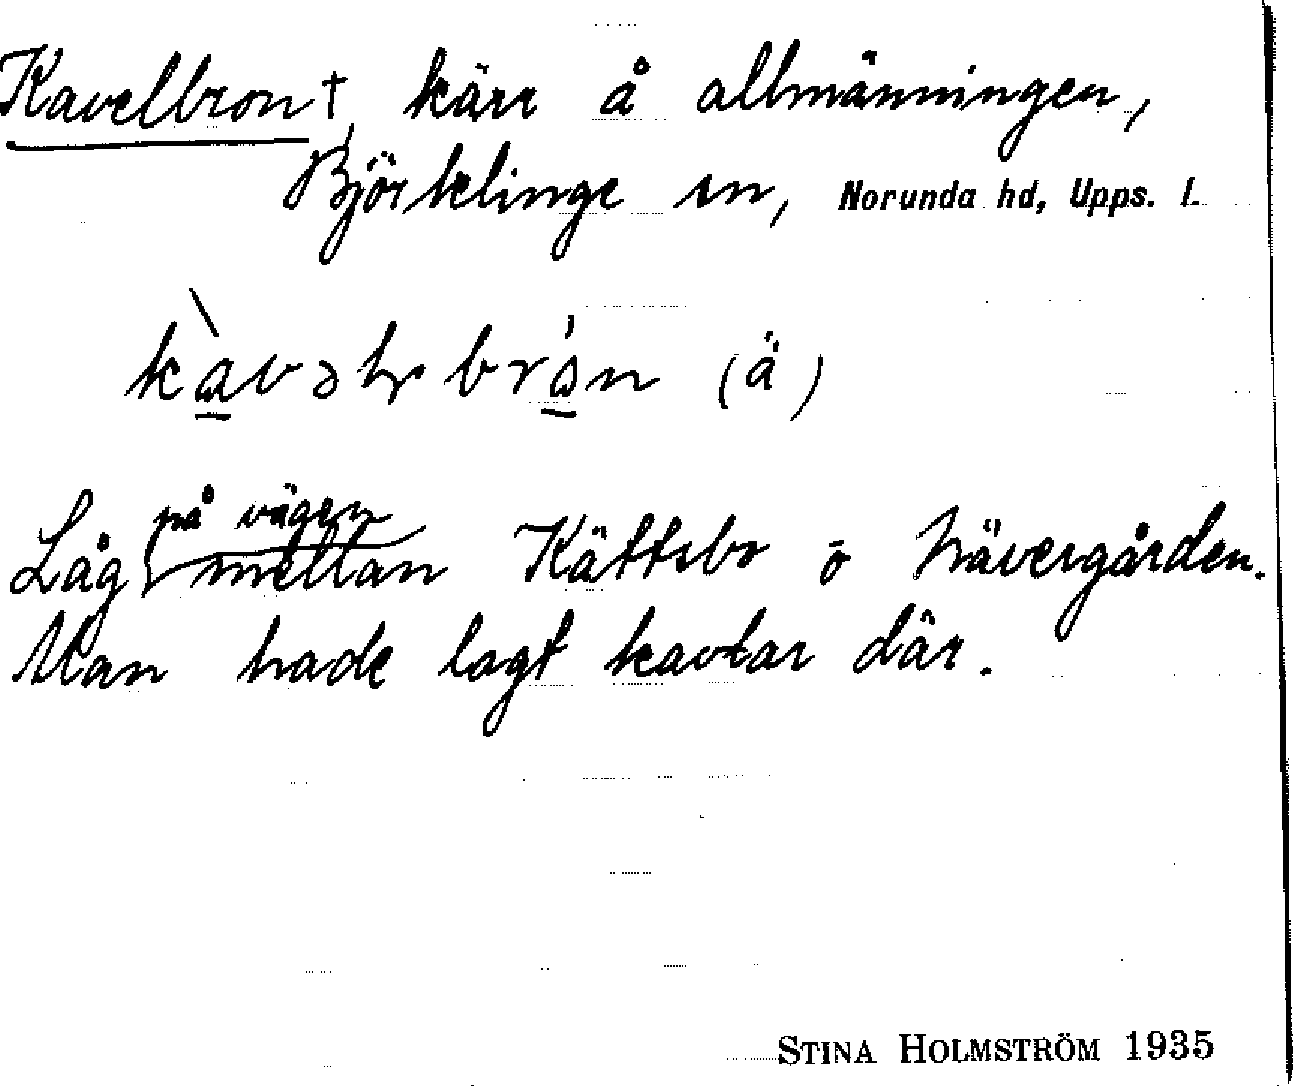 Kavelbron †, kärr å allmänningen,
Björklinge sn, Norunda hd, Upps. l.
(ä)
Låg på vägen mellan Kättsbo o Nävergården.
Man hade lagt kavlar där.
STINA HOLMSTRÖM 1935